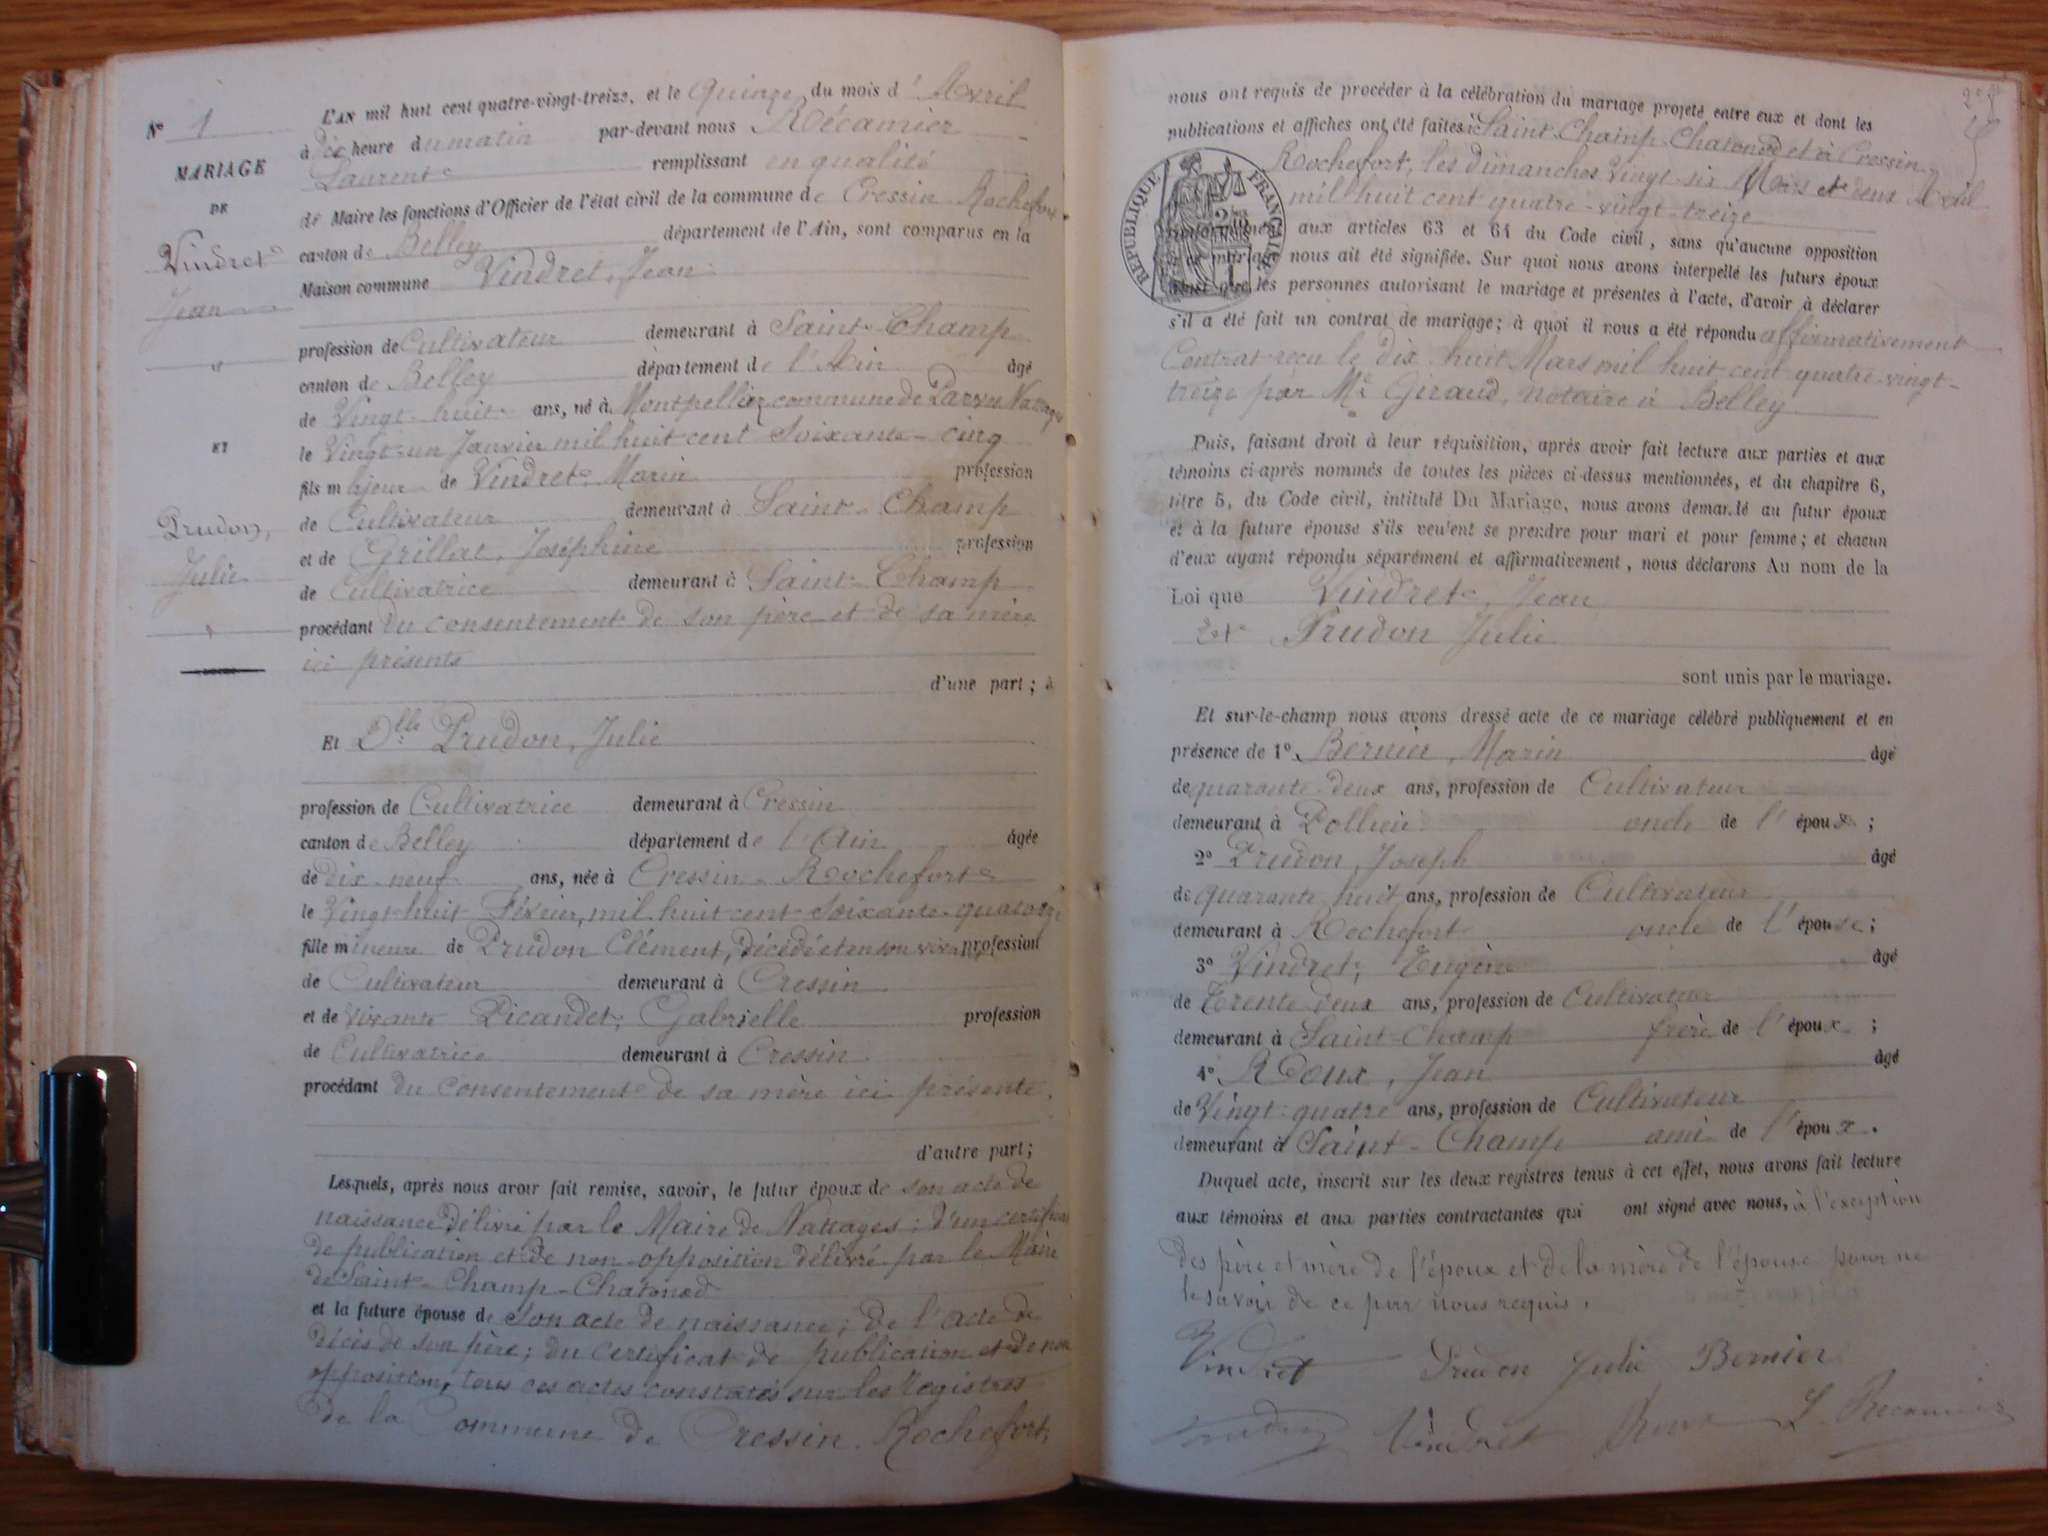 N° 1
MARIAGE
DE
Vindret
Jean
ET
Prudon,
Julie
L'AN mil huit cent quatre-vingt-treize, et le Quinze du mois d'Avril
à dix heure du matin par-devant nous Récamier
Laurent remplissant en qualité
de Maire les fonctions d'Officier de l'état civil de la commune de Cressin-Rochefort
canton de Belley département de l'Ain, sont comparus en la
Maison commune Vindret, Jean
profession de Cultivateur demeurant à Saint-Champ
canton de Belley département de l'Ain âgé
de Vingt-huit ans, né à Montpellier commune de Parves Nattages
le Vingt-un Janvier mil huit cent Soixante-cinq
fils majeur de Vindret Marin profession
de Cultivateur demeurant à Saint-Champ
et de Grillat, Joséphine profession
de Cultivatrice demeurant à Saint-Champ
procédant du consentement de son père et de sa mère
ici présents
d'une part ; à
Et Dlle Prudon, Julie
profession de Cultivatrice demeurant à Cressin
canton de Belley département de l'Ain âgée
de dix-neuf ans, née à Cressin-Rochefort
le Vingt-huit Février, mil huit cent Soixante-quatorze
fille mineure de Prudon Clément, décédé et en son vivant profession
de Cultivateur demeurant à Cressin
et de vivante Picandet, Gabrielle profession
de Cultivatrice demeurant à Cressin
procédant du consentement de sa mère ici présente,
d'autre part ;
Lesquels, après nous avoir fait remise, savoir, le futur époux de son acte de
naissance délivré par le Maire de Nattages ; d'un certificat
de publication et de non-opposition délivré par le Maire
de Saint-Champ-Chatonod
et la future épouse de Son acte de naissance ; de l'acte de
décès de son père ; du certificat de publication et de non
opposition, tous ces actes constatés sur les registres
de la Commune de Cressin-Rochefort,
nous ont requis de procéder à la célébration du mariage projeté entre eux et dont les
publications et affiches ont été faites à Saint-Champ-Chatonod et à Cressin-
Rochefort, les dimanches vingt-six Mars et deux Avril
mil huit cent quatre-vingt-treize
RÉPUBLIQUE FRANÇAISE
conformément aux articles 63 et 64 du Code civil, sans qu'aucune opposition
à ce mariage nous ait été signifiée. Sur quoi nous avons interpellé les futurs époux
ainsi que les personnes autorisant le mariage et présentes à l'acte, d'avoir à déclarer
s'il a été fait un contrat de mariage ; à quoi il nous a été répondu affirmativement
Contrat reçu le dix-huit Mars mil huit cent quatre-vingt-
treize par Me Giraud, notaire à Belley
Puis, faisant droit à leur réquisition, après avoir fait lecture aux parties et aux
témoins ci-après nommés de toutes les pièces ci-dessus mentionnées, et du chapitre 6,
titre 5, du Code civil, intitulé Du Mariage, nous avons demandé au futur époux
et à la future épouse s'ils veulent se prendre pour mari et pour femme ; et chacun
d'eux ayant répondu séparément et affirmativement, nous déclarons Au nom de la
Loi que Vindret, Jean
et Prudon Julie
sont unis par le mariage.
Et sur-le-champ nous avons dressé acte de ce mariage célébré publiquement et en
présence de 1° Bernier, Marin âgé
de quarante-deux ans, profession de Cultivateur
demeurant à Pollieu oncle de l'époux ;
2° Prudon, Joseph âgé
de quarante-huit ans, profession de Cultivateur
demeurant à Rochefort oncle de l'épouse ;
3° Vindret, Eugène âgé
de Trente-deux ans, profession de Cultivateur
demeurant à Saint-Champ frère de l'époux ;
4° Roux, Jean âgé
de Vingt-quatre ans, profession de Cultivateur
demeurant à Saint-Champ ami de l'époux.
Duquel acte, inscrit sur les deux registres tenus à cet effet, nous avons fait lecture
aux témoins et aux parties contractantes qui ont signé avec nous, à l'exception
des père et mère de l'époux et de la mère de l'épouse pour ne
le savoir de ce par nous requis.
Vindret Prudon Julie Bernier
Vindret Roux L. Récamier